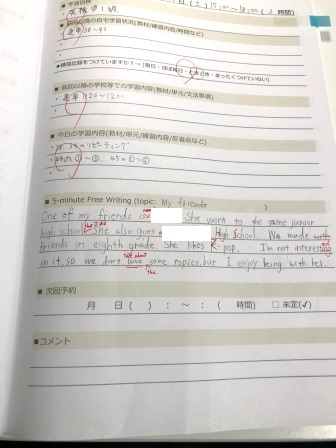 ■学習目標
英検準1級
(土) 15:00〜18:00 (3時間)
の自宅学習状況(教材/練習内容/時間など)
・単準1 38〜41
■練習記録をつけていますか?→(毎日・ほぼ毎日・ときどき・まったくつけていない)
■前回以降の学校等での学習内容(教材/単元/文法事項)
・1120〜1200
■今日の学習内容(教材/単元/練習内容/反省点など)
のリピーティング
・44の①〜③、45の①〜②
■5-minute Free Writing (topic: My friends )
One of my friends is She went to the same junior
high school She also goes High School. We made
friends in eighth grade. She likes K-pop. I'm not interesting
in it, so we don't have same topics, but I enjoy being with her.
talk about
the
ed
■次回予約
月 日( ) : 〜 : ( 時間) □未定(✓)
■コメント